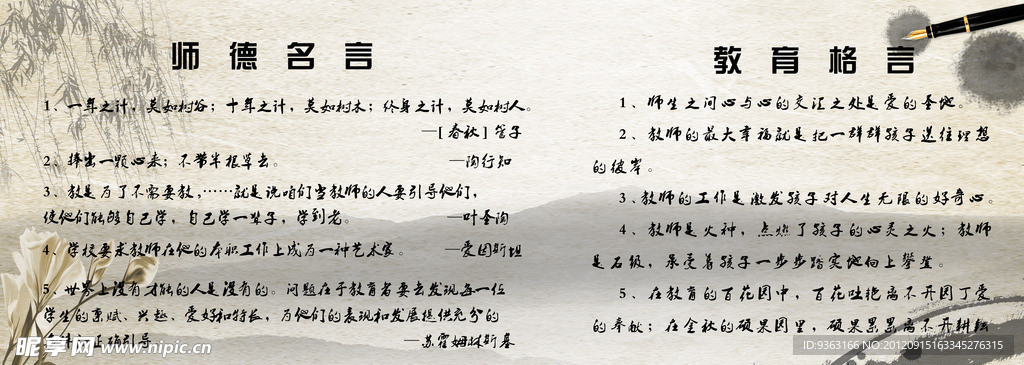 师德名言
1、一年之计，莫如树谷；十年之计，莫如树木；终身之计，莫如树人。
—[春秋]管子
2、捧出一颗心来；不带半根草去。 —陶行知
3、教是为了不需要教，……就是说咱们当教师的人要引导他们，
使他们能够自己学，自己学一辈子，学到老。 —叶圣陶
4、学校要求教师在他的本职工作上成为一种艺术家。 —爱因斯坦
5、世界上没有才能的人是没有的。问题在于教育者要去发现每一位
学生的禀赋、兴趣、爱好和特长，为他们的表现和发展提供充分的
正确引导 —苏霍姆林斯基
教育格言
1、师生之间心与心的交汇之处是爱的圣地。
2、教师的最大幸福就是把一群群孩子送往理想
的彼岸。
3、教师的工作是激发孩子对人生无限的好奇心。
4、教师是火神，点燃了孩子的心灵之火；教师
是石级，承受着孩子一步步踏实地向上攀登。
5、在教育的百花园中，百花吐艳离不开园丁爱
的奉献；在金秋的硕果园里，硕果累累离不开耕耘
昵享网 www.nipic.cn
ID:9363166 NO:20120915163345276315